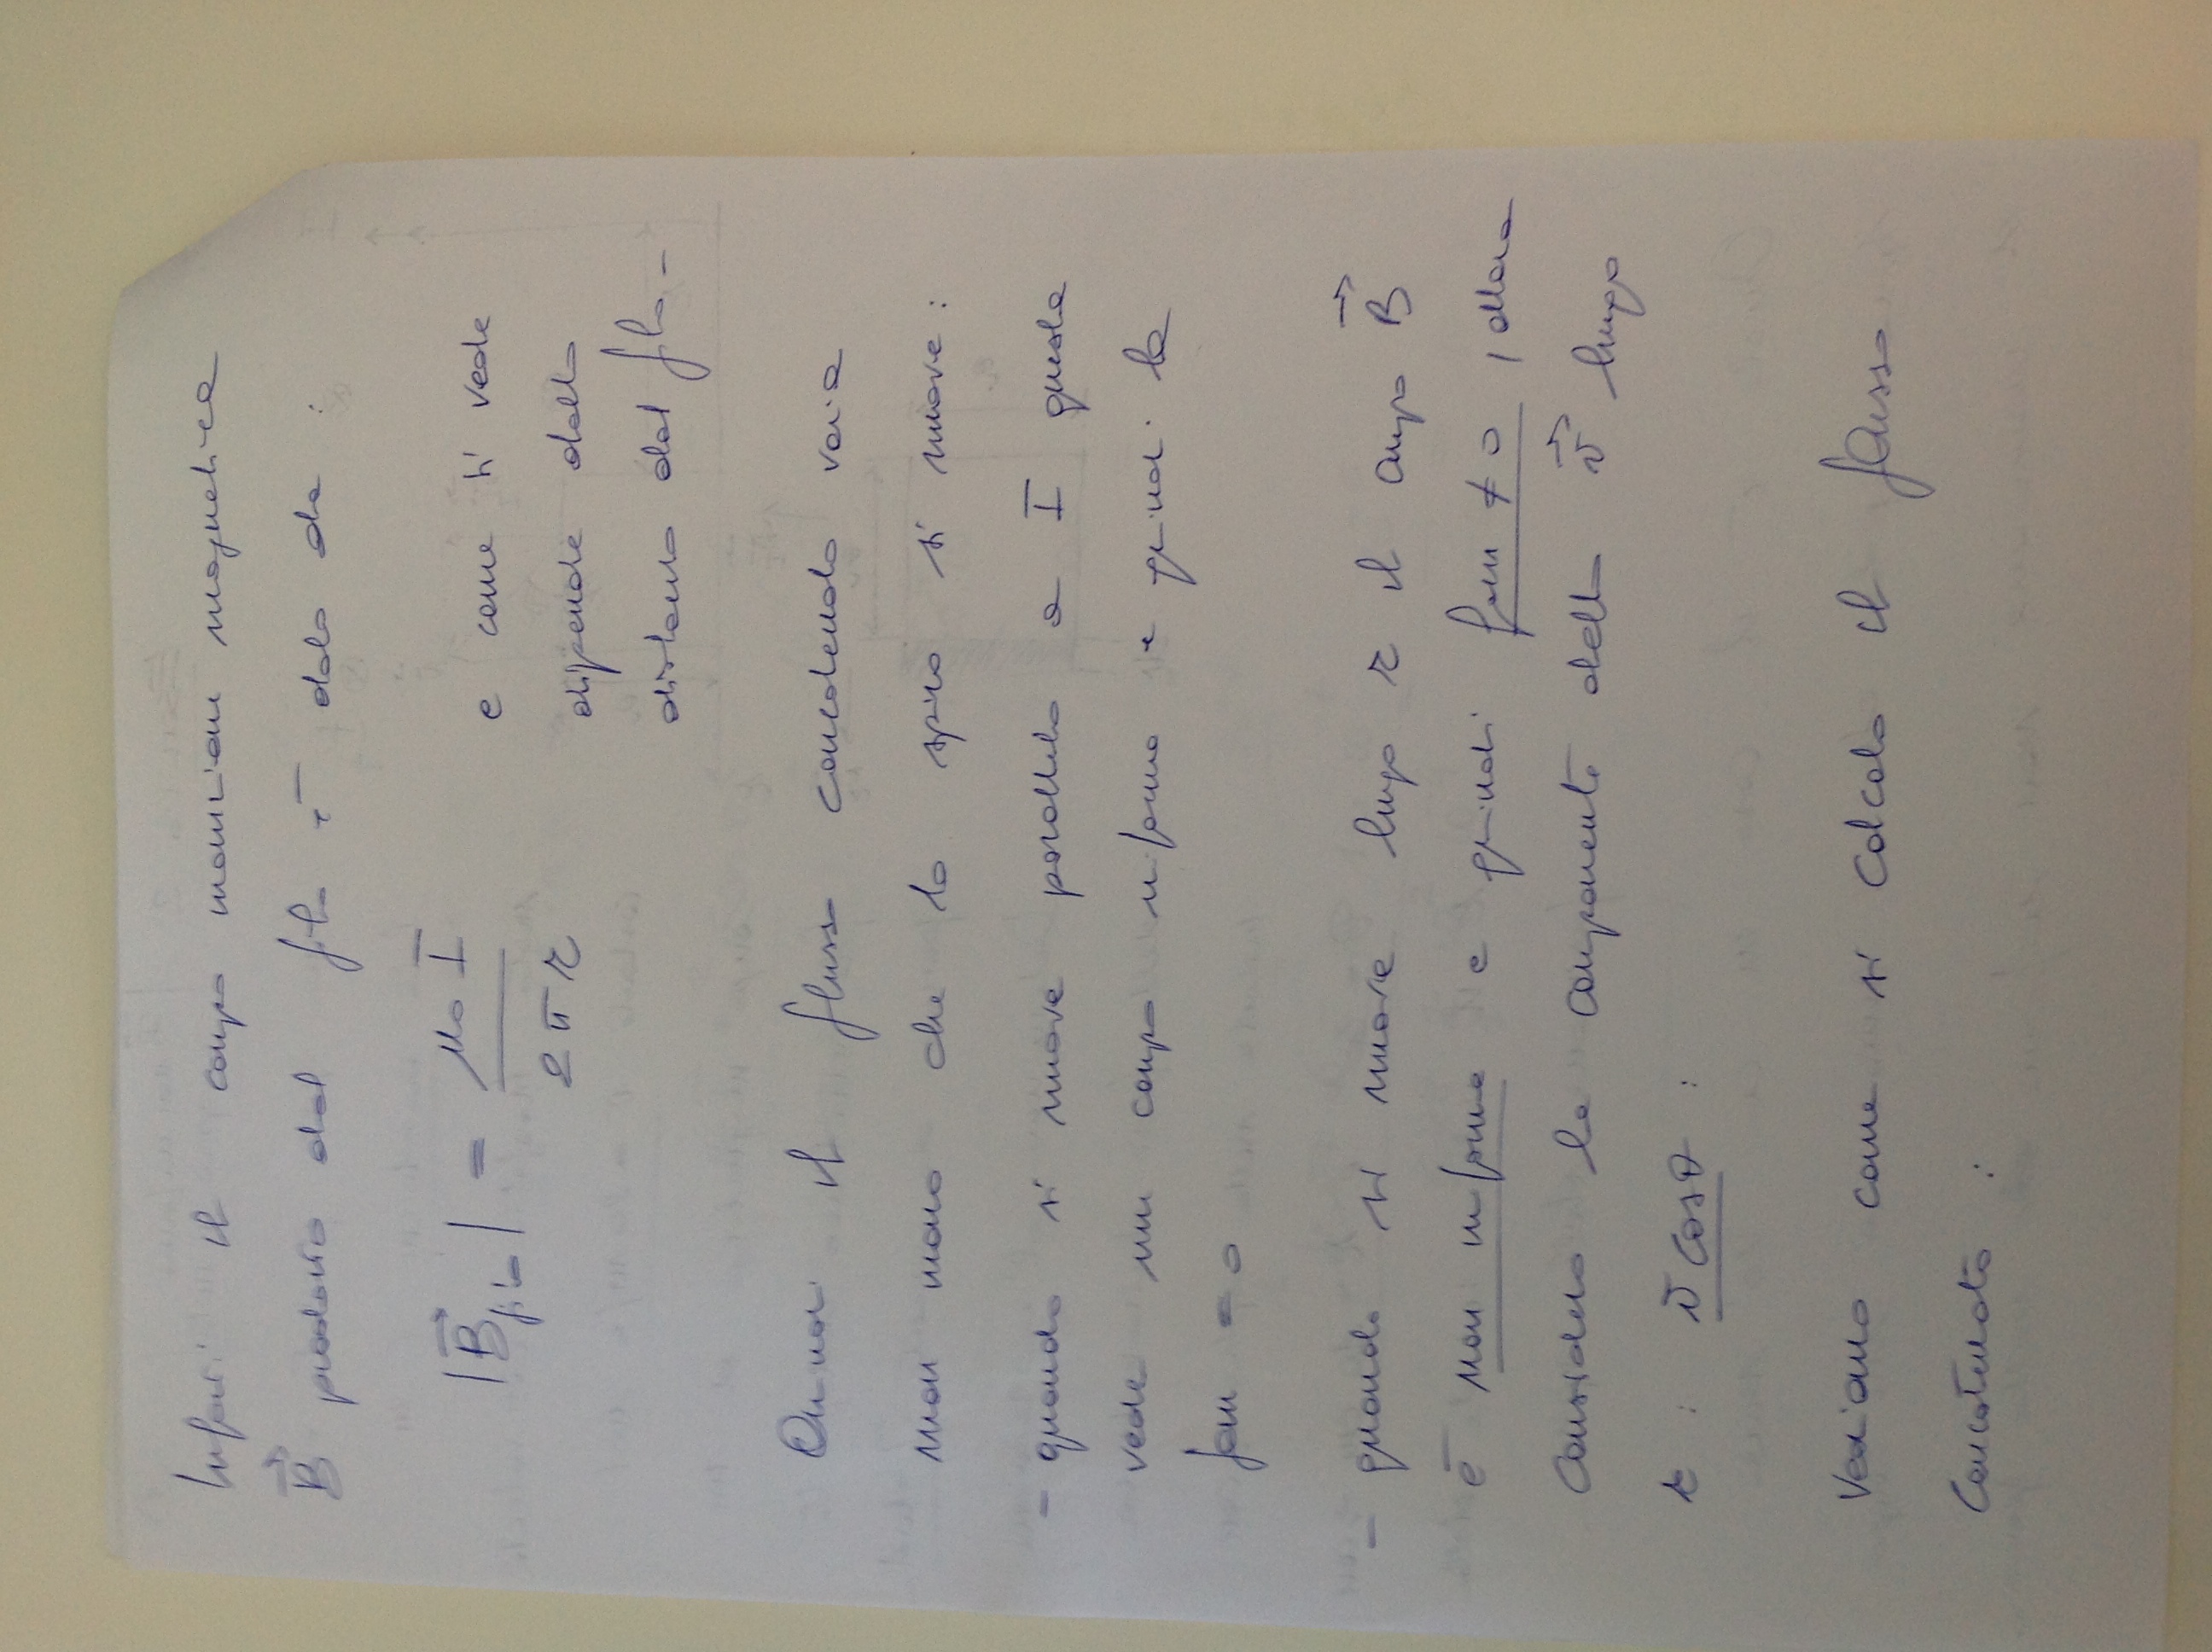 Infatti il campo induzione magnetica
B⃗ prodotto dal filo è dato da :
|B⃗filo| = μ0 I / 2 π r
e come si vede
dipende dalla
distanza dal filo -
Quindi il flusso concatenato varia
man mano che la spira si muove :
- quando si muove parallela a I questa
vede un campo uniforme e quindi la
fem = 0
- quando si muove lungo r il campo B⃗
è non uniforme e quindi fem ≠ 0 , allora
considero la componente della v⃗ lungo
r : v cosθ :
Vediamo come si calcola il flusso
concatenato :